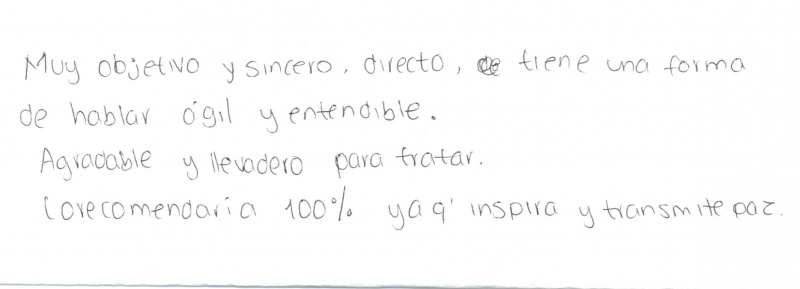 Muy objetivo y sincero, directo, tiene una forma
de hablar ágil y entendible.
Agradable y llevadero para tratar.
Lo recomendaría 100% ya q' inspira y transmite paz.